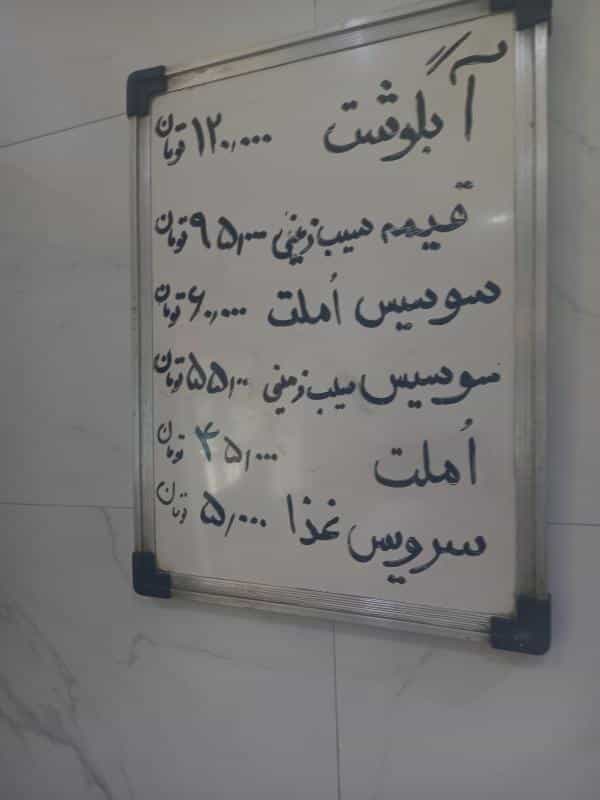 آبگوشت ۱۲۰,۰۰۰ تومان
قیمه سیب زمینی ۹۵,۰۰۰ تومان
سوسیس اُملت ۶۰,۰۰۰ تومان
سوسیس سیب زمینی ۵۵,۰۰۰ تومان
اُملت ۴۵,۰۰۰ تومان
سرویس غذا ۵,۰۰۰ تومان